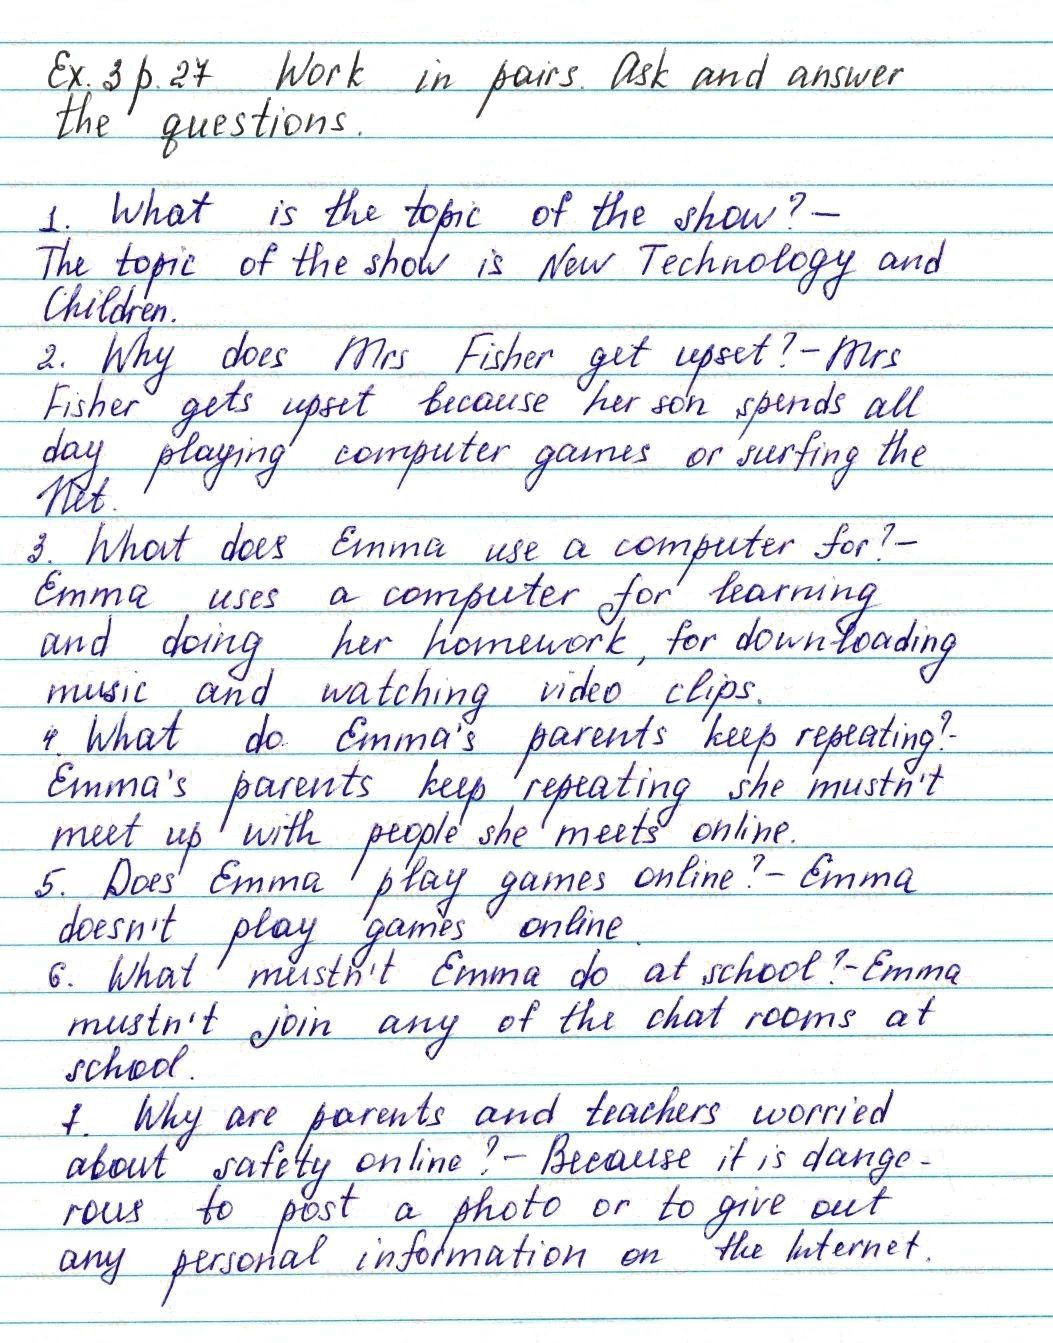 Ex. 3 p. 27 Work in pairs. Ask and answer
the questions.
1. What is the topic of the show? –
The topic of the show is New Technology and
Children.
2. Why does Mrs Fisher get upset? – Mrs
Fisher gets upset because her son spends all
day playing computer games or surfing the
Net.
3. What does Emma use a computer for? –
Emma uses a computer for learning
and doing her homework, for downloading
music and watching video clips.
4. What do Emma's parents keep repeating? -
Emma's parents keep repeating she mustn't
meet up with people she meets online.
5. Does Emma play games online? – Emma
doesn't play games online.
6. What mustn't Emma do at school? - Emma
mustn't join any of the chat rooms at
school.
7. Why are parents and teachers worried
about safety online? – Because it is dange-
rous to post a photo or to give out
any personal information on the Internet.